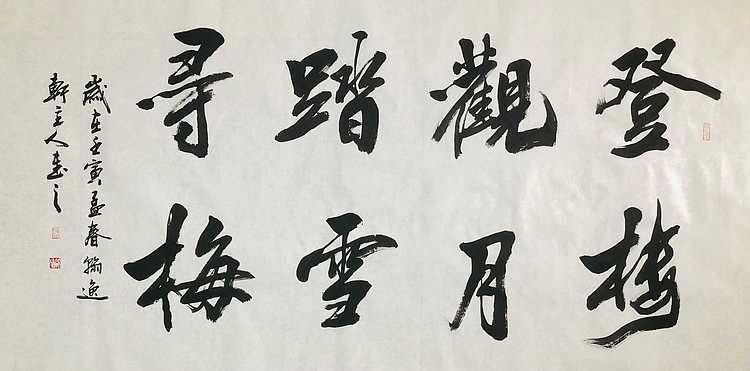 登樓
觀月
踏雪
尋梅
歲在壬寅孟春翰逸
軒主人書之